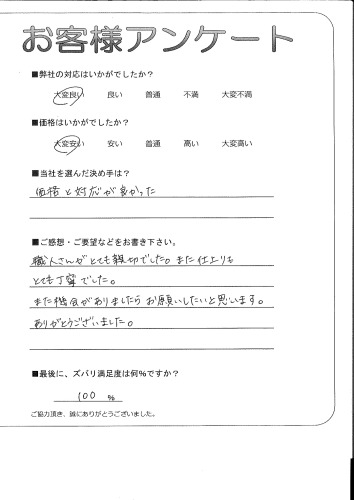 お客様アンケート
■弊社の対応はいかがでしたか？
大変良い 良い 普通 不満 大変不満
■価格はいかがでしたか？
大変安い 安い 普通 高い 大変高い
■当社を選んだ決め手は？
価格と対応が良かった
■ご感想・ご要望などをお書き下さい。
職人さんがとても親切でした。また仕上りも
とても丁寧でした。
また機会がありましたらお願いしたいと思います。
ありがとうございました。
■最後に、ズバリ満足度は何%ですか？
100 %
ご協力頂き、誠にありがとうございました。